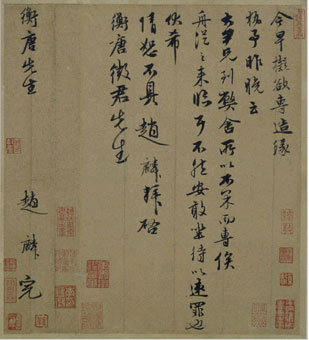 今早擬欲專造緣
楊子昨晚云
大尹兄到弊舍所以不果而專俟
舟從之來臨耳不然安敢坐待以速罪也
伏希
情恕不具趙麟拜啓
衡唐徵君先生
衡唐先生 趙麟完